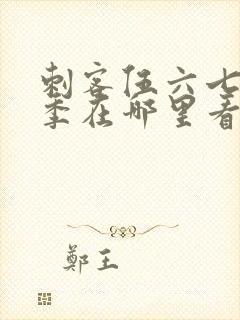 刺客伍六七
季在哪里看
鄭王